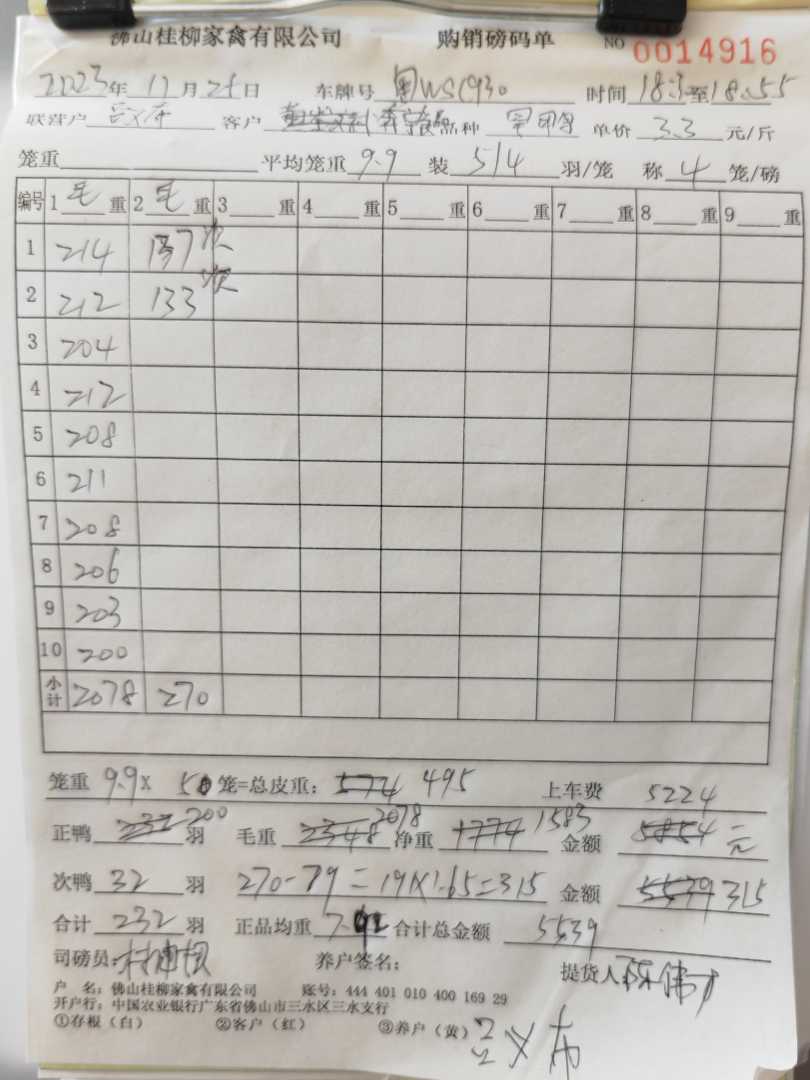 佛山桂柳家禽有限公司 购销磅码单 NO 0014916
2023年 月 日 车牌号 时间 至18:55
联营户 客户 品种 单价 3.3 元/斤
笼重 平均笼重 9.9 装 5/4 羽/笼 称 4 笼/磅
编号 1 毛 重 2 毛 重 3 重 4 重 5 重 6 重 7 重 8 重 9 重
1 214 137 次
2 212 133 次
3 204
4 212
5 208
6 211
7 208
8 206
9 203
10 200
小计 2078 270
笼重 9.9 x 50 笼=总皮重: 574 495 上车费 5224
正鸭 232 200 羽 毛重 2348 2078 净重 1774 1583 金额 5854 元
次鸭 32 羽 270-79=191X1.65=315 金额 5539 315
合计 232 羽 正品均重 7.92 合计总金额 5539
司磅员: 养户签名: 提货人 陈伟
户 名: 佛山桂柳家禽有限公司 账号: 444 401 010 400 169 29
开户行: 中国农业银行广东省佛山市三水区三水支行
①存根(白) ②客户(红) ③养户(黄)